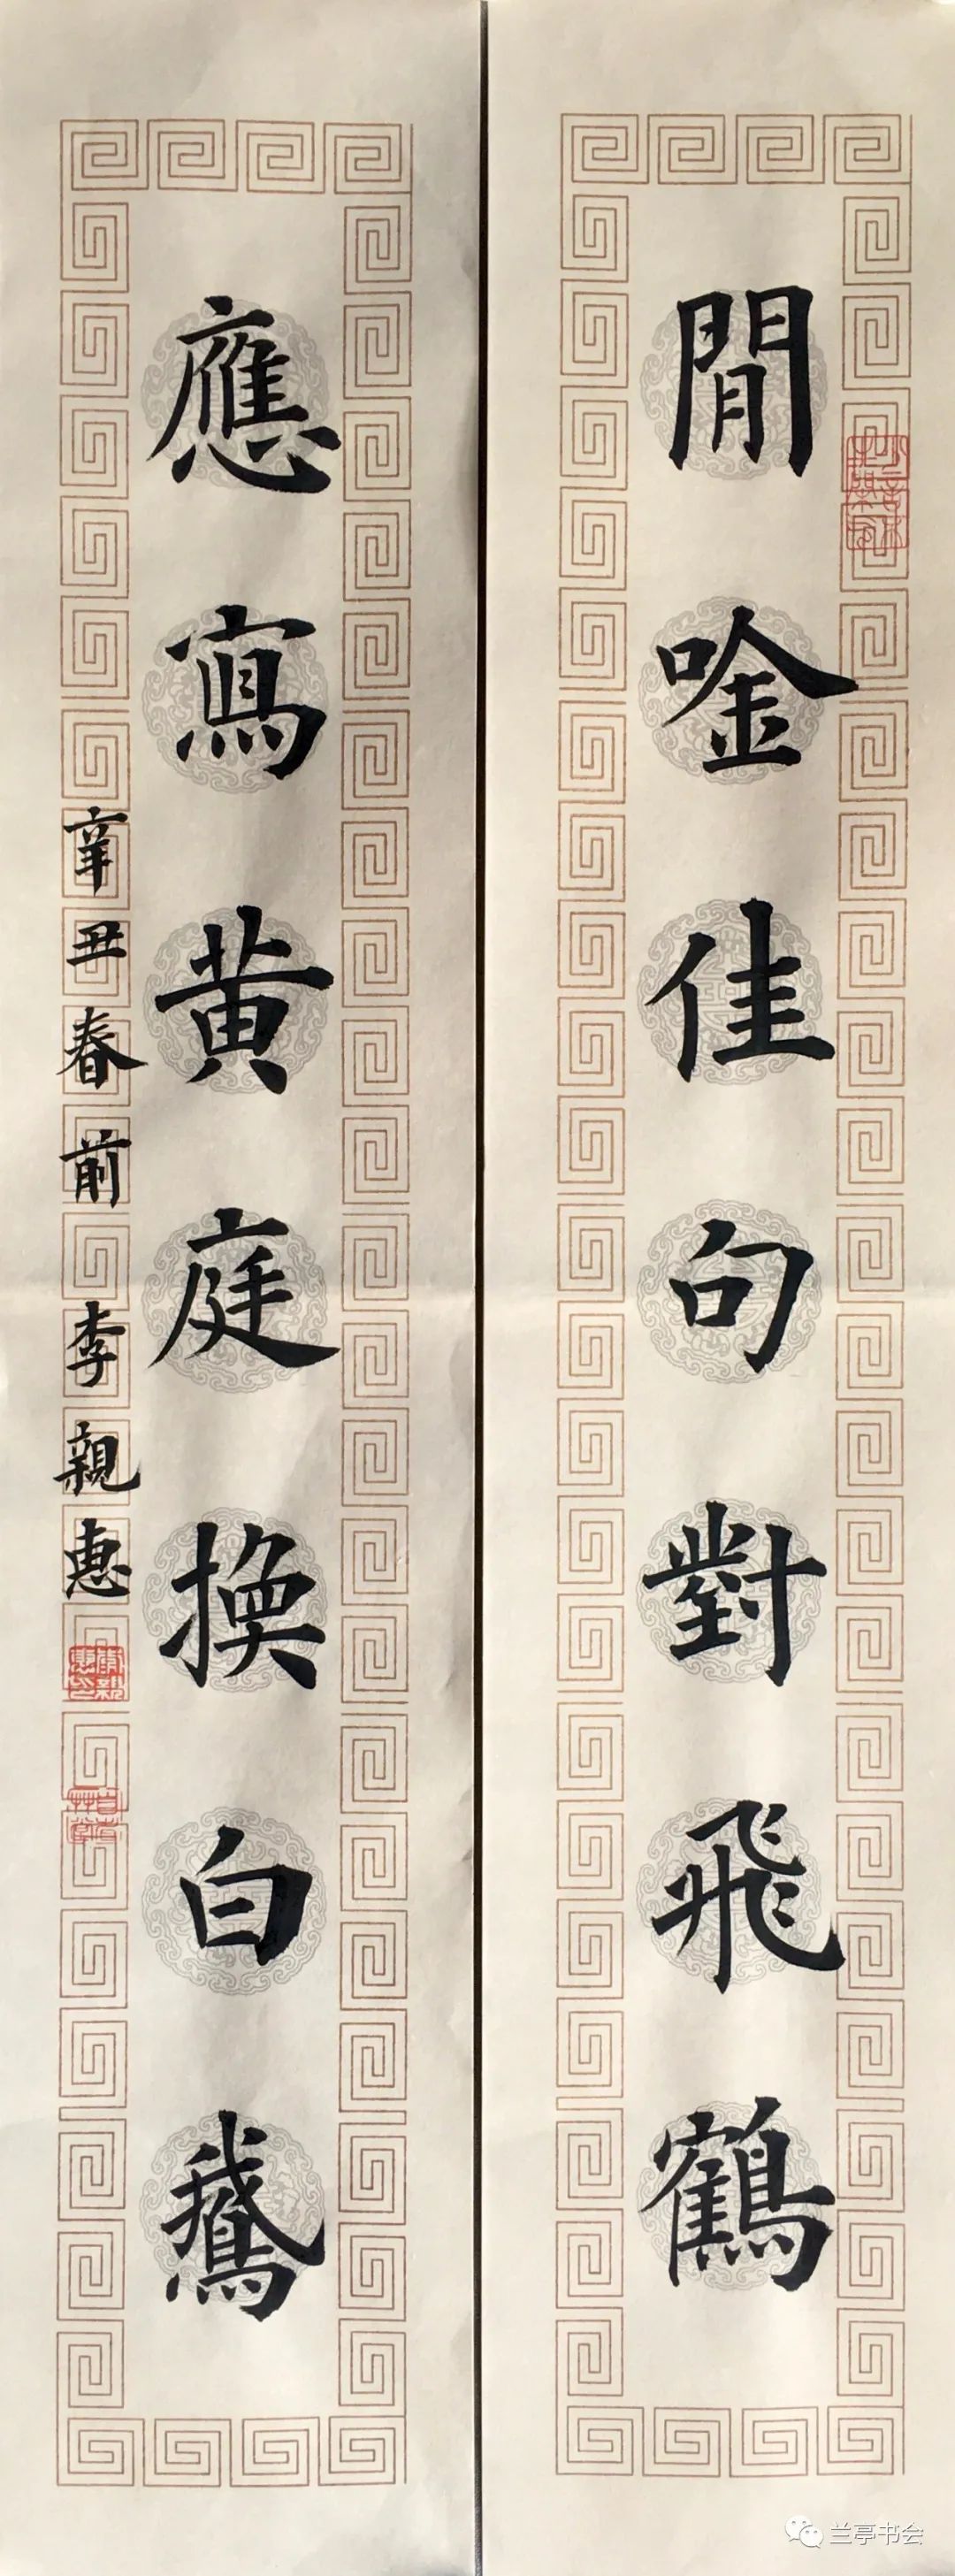 閒唫佳句對飛鶴
應寫黄庭換白鵞
辛丑春前 李親惠
兰亭书会